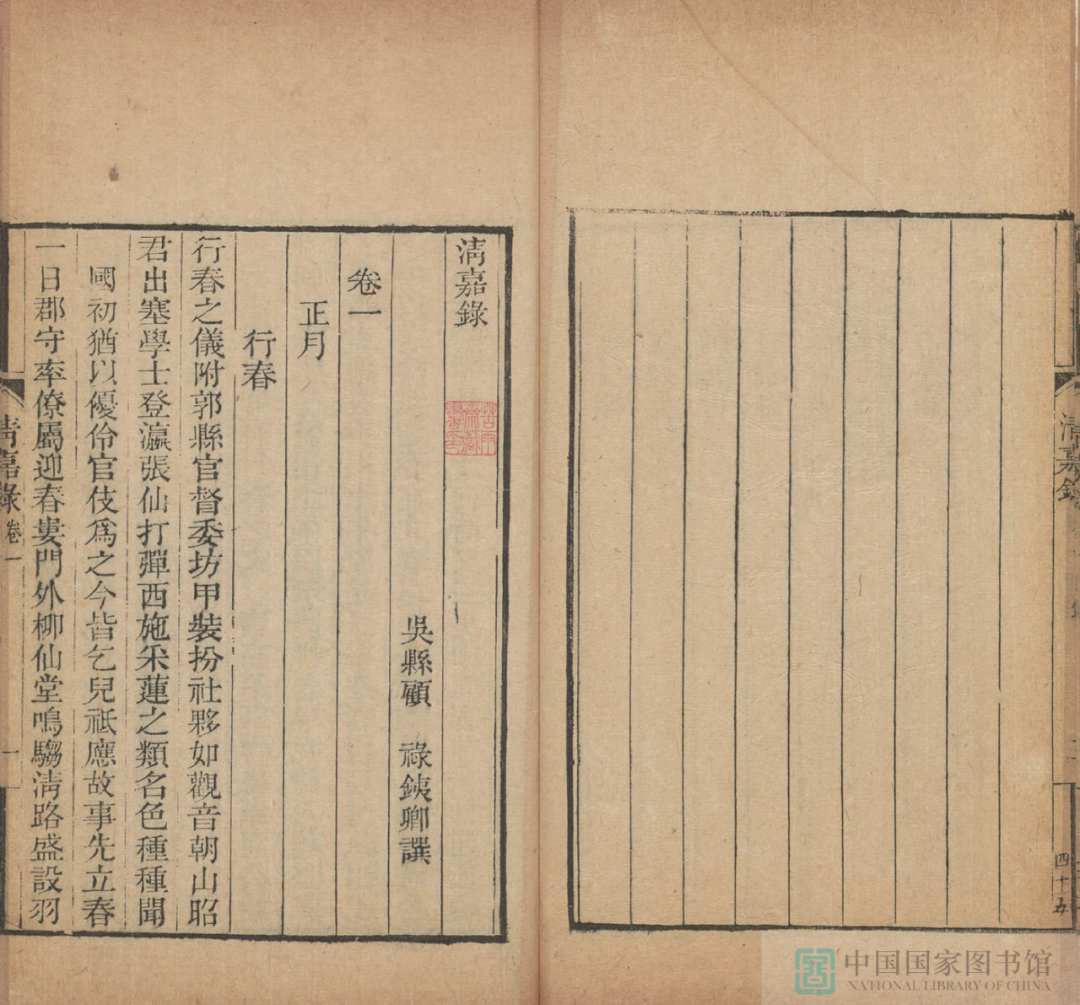 清嘉錄
四十五
清嘉錄
吳縣顧　祿鐵卿譔
卷一
正月
行春
行春之儀附郭縣官督委坊甲裝扮社夥如觀音朝山昭
君出塞學士登瀛張仙打彈西施采蓮之類名色種種聞
國初猶以優伶官伎爲之今皆乞兒祗應故事先立春
一日郡守率僚屬迎春婁門外柳仙堂鳴騶淸路盛設羽
清嘉錄
卷一
一
中国国家图书馆
NATIONAL LIBRARY OF CHINA